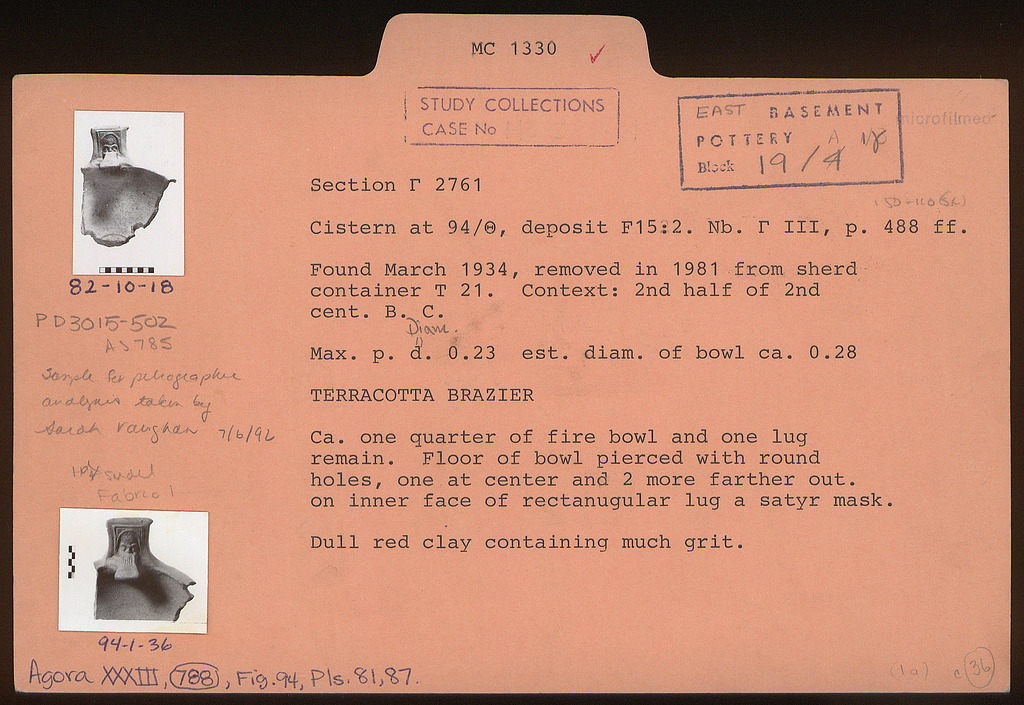 MC 1330 ✓
STUDY COLLECTIONS
CASE No
EAST BASEMENT
POTTERY A 18
Block 19/4
microfilmed
Section Γ 2761
150-110 (SR)
Cistern at 94/Θ, deposit F15:2. Nb. Γ III, p. 488 ff.
Found March 1934, removed in 1981 from sherd
container T 21. Context: 2nd half of 2nd
cent. B. C.
Diam.
Max. p. d. 0.23 est. diam. of bowl ca. 0.28
TERRACOTTA BRAZIER
Ca. one quarter of fire bowl and one lug
remain. Floor of bowl pierced with round
holes, one at center and 2 more farther out.
on inner face of rectanugular lug a satyr mask.
Dull red clay containing much grit.
82-10-18
PD3015-502
AS785
Sample for petrographic
analysis taken by
Sarah Vaughan 7/6/92
Fabric 1
94-1-36
Agora XXXIII, 788, Fig. 94, Pls. 81, 87.
(1a) c 36